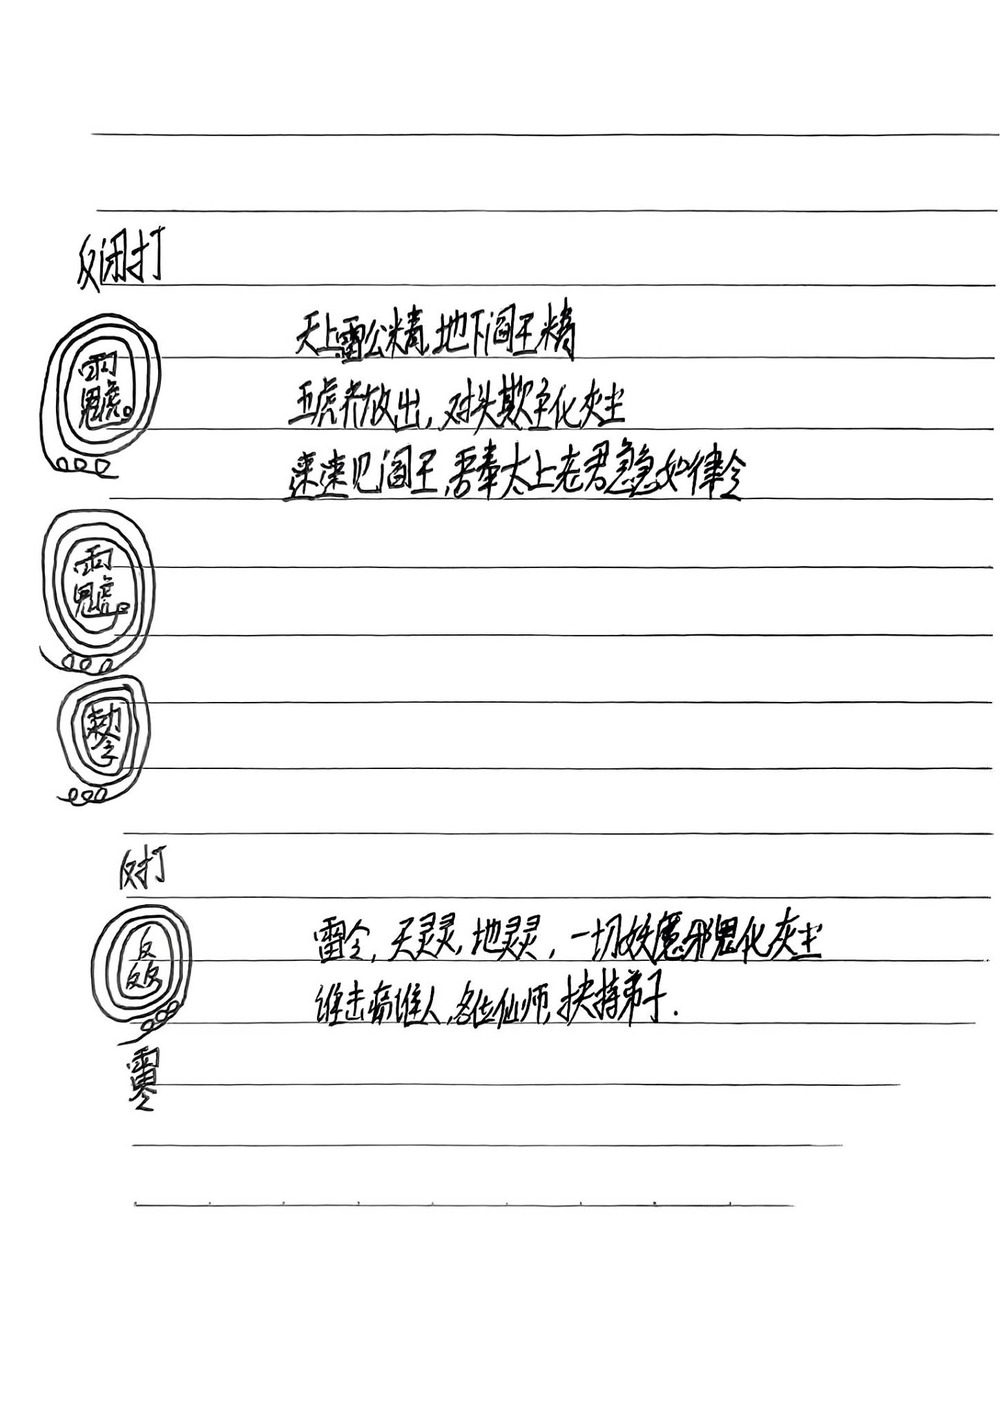 反闭打
天上雷公精,地下阎王精
五虎齐放出,对头欺字化灰尘
速速见阎王,吾奉太上老君急急如律令
反打
反反反
雷令,天灵灵,地灵灵,一切妖魔邪鬼化灰尘
谁击谁人,各位仙师,扶持弟子.